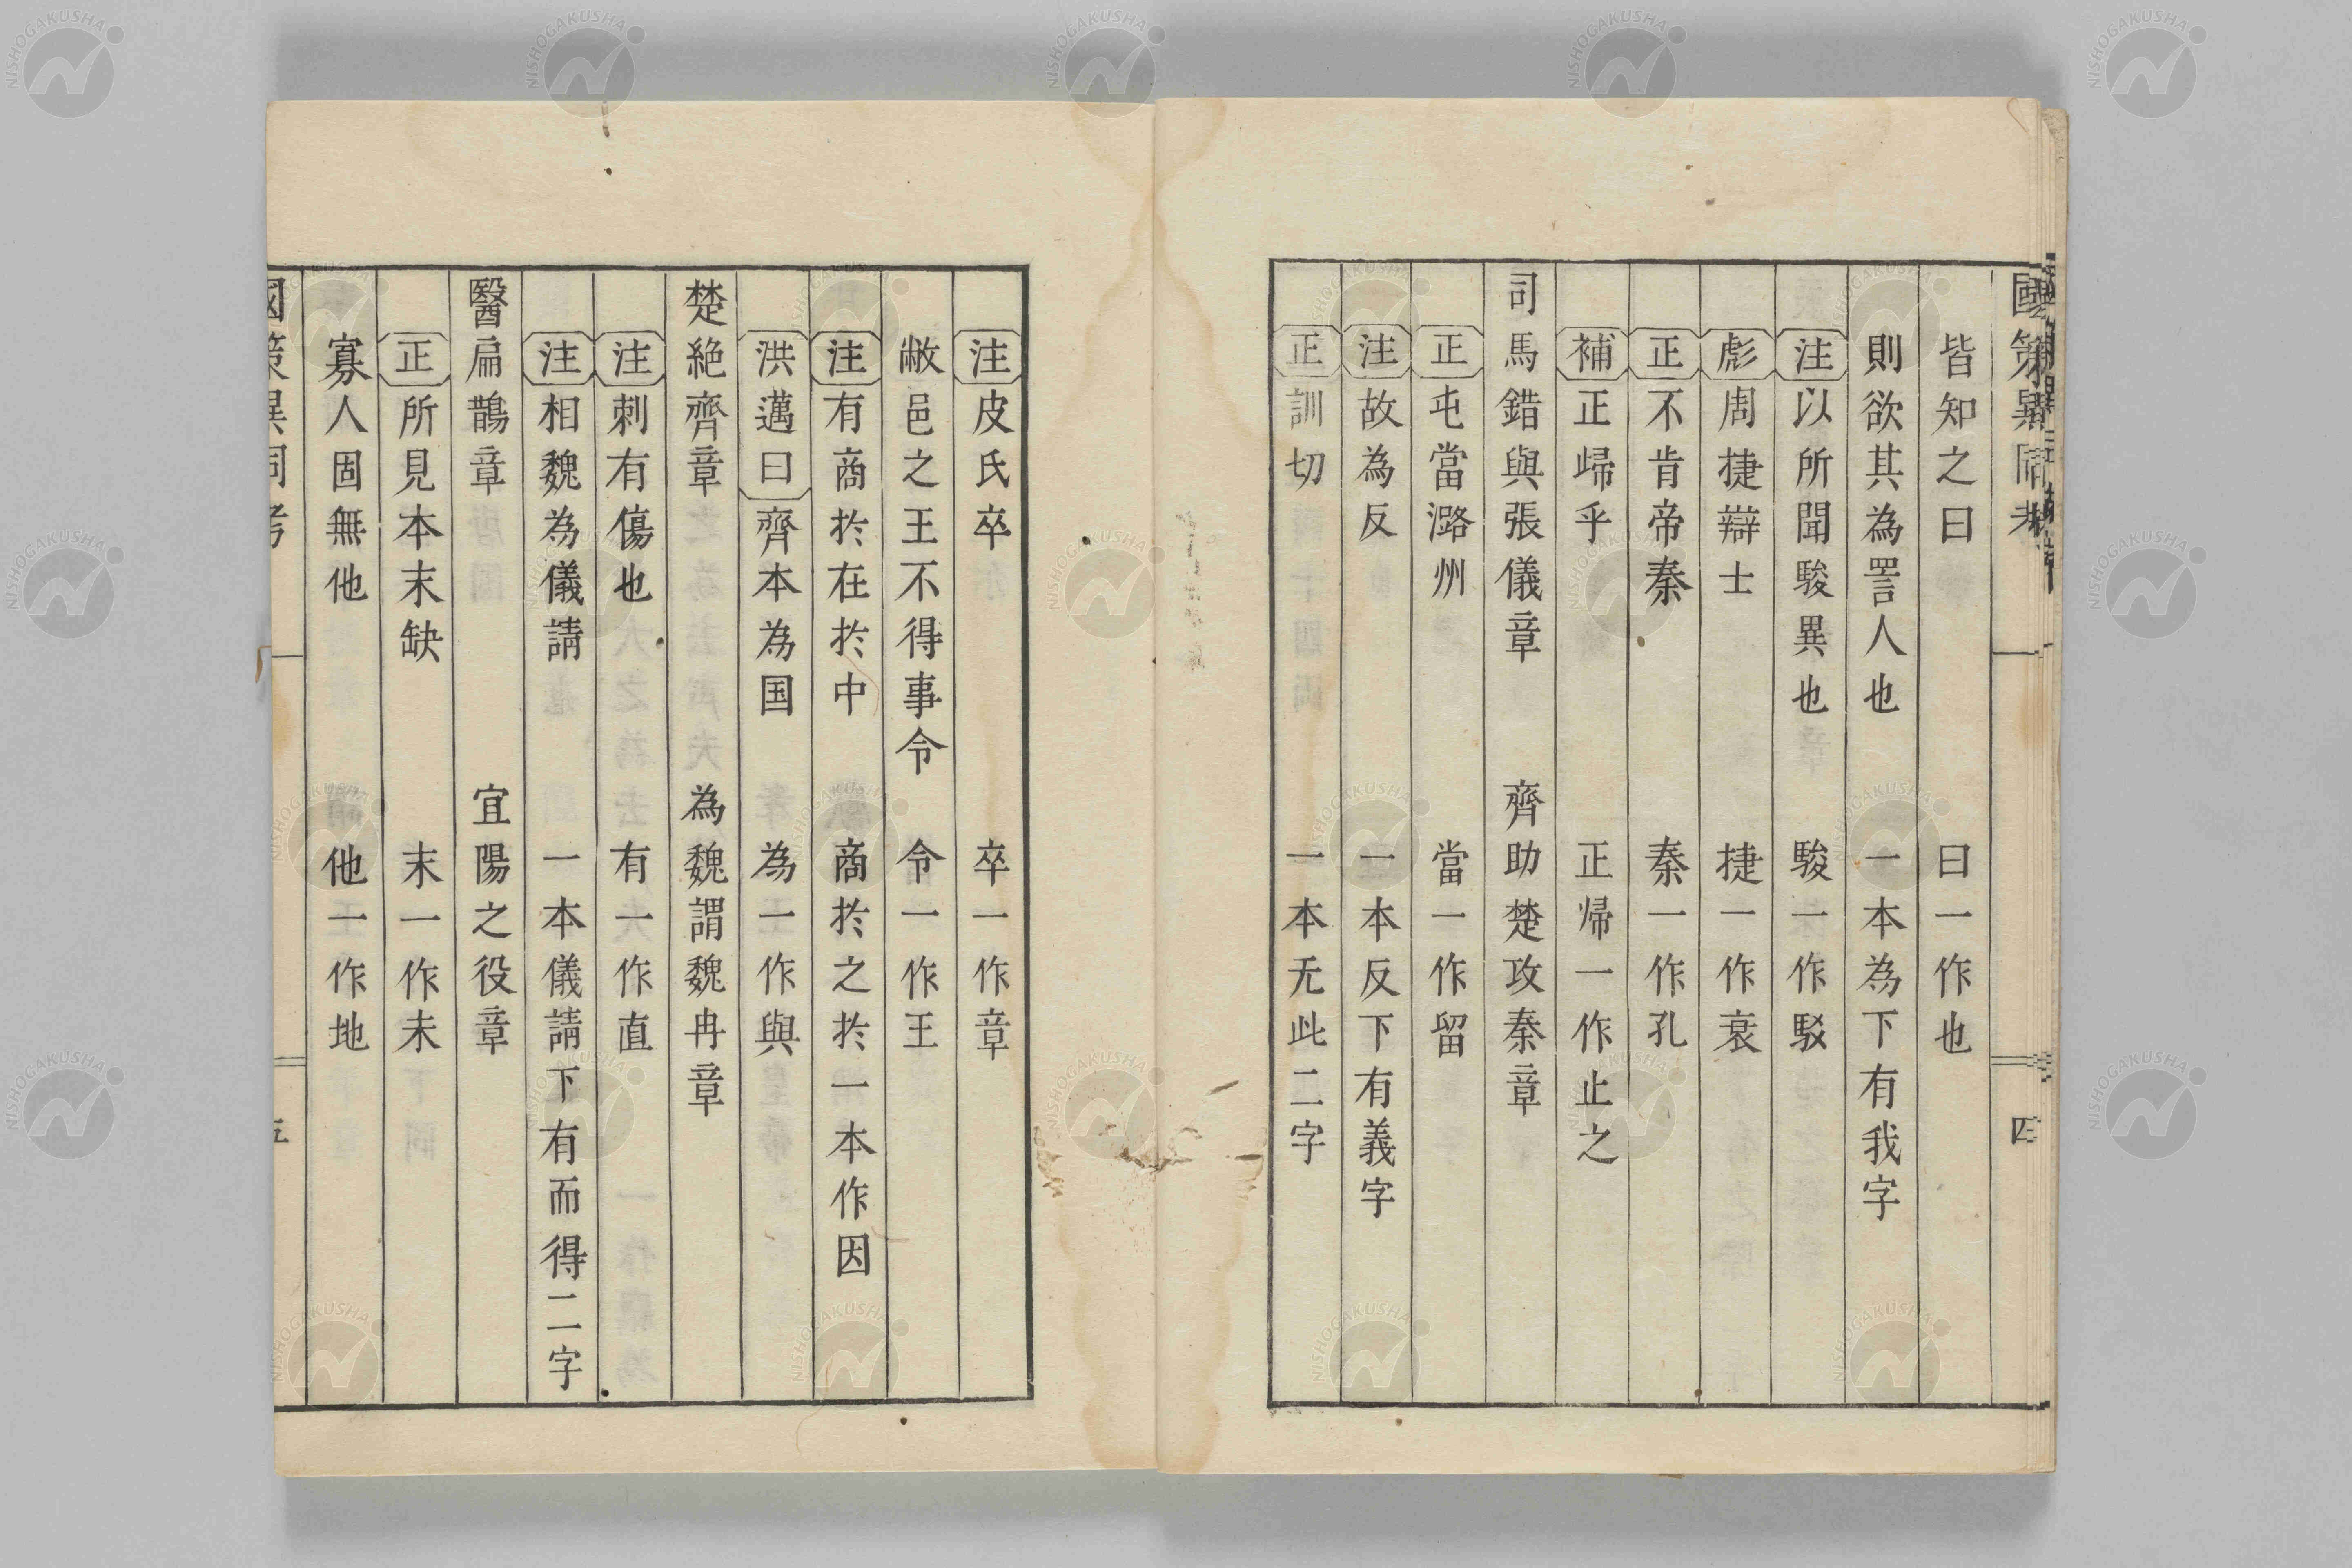 國策異同考 四
皆知之曰 曰一作也
則欲其為詈人也 一本為下有我字
注 以所聞駿異也 駿一作駁
彪 周捷辯士 捷一作衰
正 不肯帝秦 秦一作孔
補 正歸乎 正帰一作止之
司馬錯與張儀章 齊助楚攻秦章
正 屯當潞州 當一作留
注 故為反 一本反下有義字
正 訓切 一本无此二字
注 皮氏卒 卒一作章
敝邑之王不得事令 令一作王
注 有商扵在扵中 商扵之扵一本作因
洪邁曰 齊本為国 為一作與
楚絶齊章 為魏謂魏冉章
注 刺有傷也 有一作直
注 相魏為儀請 一本儀請下有而得二字
醫扁鵲章 宜陽之役章
正 所見本末缺 末一作未
寡人固無他 他一作地
國策異同考 五
NISHOGAKUSHA